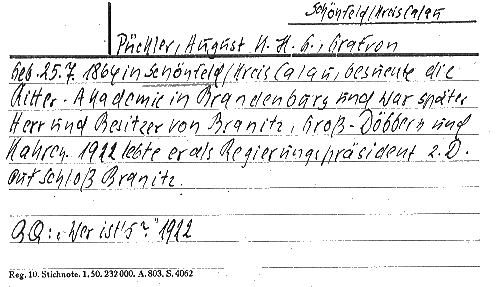 Schönfeld/Kreis Calau
Pückler, August K. H. E., Graf von
Geb. 25.7. 1864 in Schönfeld/Kreis Calau, besuchte die
Ritter-Akademie in Brandenburg und war später
Herr und Besitzer von Branitz, Groß-Döbbern und
Kahren. 1922 lebte er als Regierungspräsident z.D.
auf Schloß Branitz.
QQ: „Wer ist's?" 1922
Reg. 10. Stichnote. 1, 50. 232 000. A. 803. S. 4062